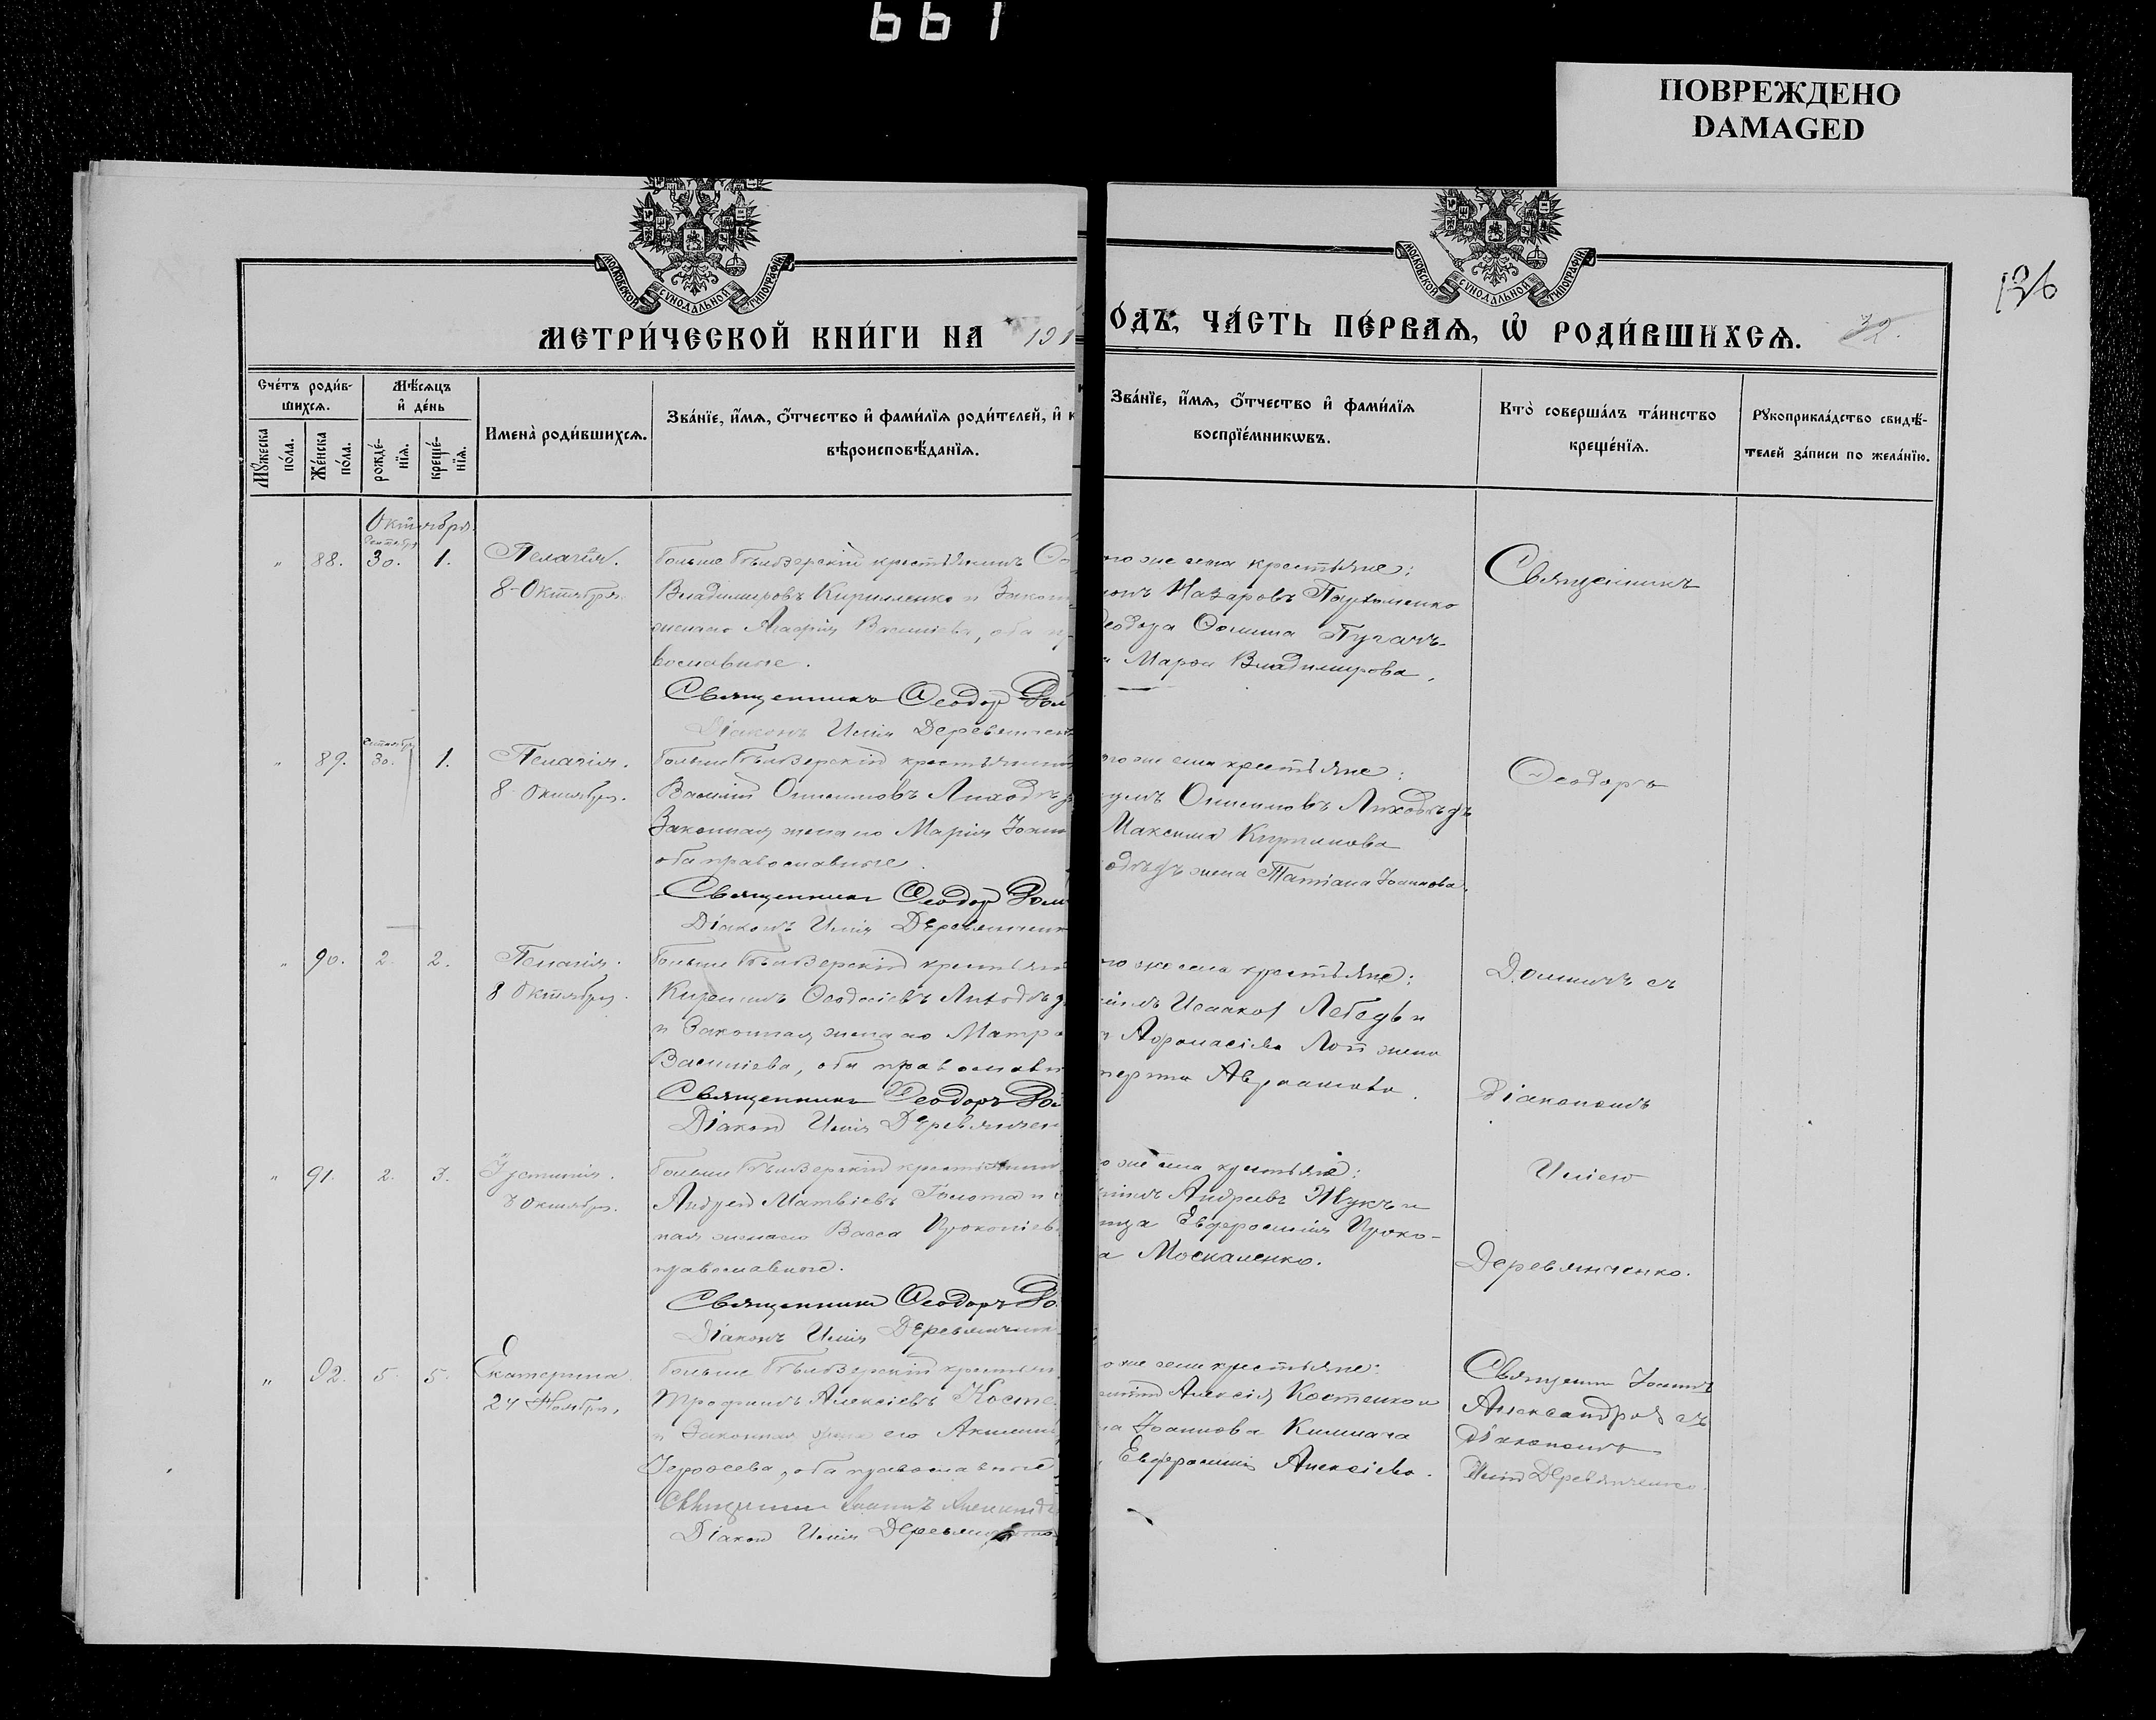 661
ПОВРЕЖДЕНО
DAMAGED
МОСКОВСКОЙ СУНОДАЛЬНОЙ ТИПОГРАФІИ
МОСКОВСКОЙ СУНОДАЛЬНОЙ ТИПОГРАФІИ
136
МЕТРИ́ЧЕСКОЙ КНИ́ГИ НА 191
ОДЪ, ЧА́СТЬ ПЕ́РВАѦ, Ѡ҆ РОДИ́ВШИХСѦ.
Сче́тъ роди́в-
шихсѧ.
Мѣ́сѧцъ
и҆ де́нь
Мꙋ́жеска
по́ла.
Же́нска
по́ла.
рожде́-
нїѧ.
креще́-
нїѧ.
Имена̀ роди́вшихсѧ.
Зва́нїе, и҆́мѧ, ѻ҆́тчество и҆ фами́лїѧ роди́телей, и҆ к
вѣроисповѣ́данїѧ.
Зва́нїе, и҆́мѧ, ѻ҆́тчество и҆ фами́лїѧ
воспрїе́мникѡвъ.
Кто̀ соверша́лъ та́инство
креще́нїѧ.
Рꙋкоприкла́дство свидѣ́-
телей за́писи по жела́нїю.
Октября.
Сентября
" 88. 30. 1. Пелагія.
8 Октября.
Больше Бѣлозерскій крестьянинъ
Владиміровъ Кириленко и Закон
жена его Марія Васильева, оба пр
вославные.
Священникъ Ѳеодор
Діаконъ Илія Деревянчен
го же села крестьяне:
Назаровъ Пархоменко
еодора Ѳомина Пугачъ
и Марѳа Владимірова.
Священникъ
Сентября
" 89. 30. 1. Пелагія.
8 Октября.
Больше Бѣлозерскій крестьянинъ
Василій Онисимовъ Лиходѣд
Законная жена его Марія Іоанн
оба православные.
Священникъ Ѳеодор
Діаконъ Илія Деревянченк
го же села крестьяне:
Онисимовъ Лиходѣдъ
Максима
одѣдъ жена Татіана Іоаннова.
Ѳеодоръ
" 90. 2. 2. Пелагія.
8 Октября.
Больше Бѣлозерскій крестьян
Ѳеодосіевъ Лиходѣд
и Законная жена его Матро
Васильева, оба православн
Священникъ Ѳеодоръ
Діакон Илія Деревянчен
го же села крестьяне:
Исааков Лебедь и
Аѳанасіева жена
терина Авраамова.
съ
Діакономъ
" 91. 2. 3. Іустинія.
8 Октября.
Больше Бѣлозерскій крестьянин
Андрей Матвѣевъ Голота и
ная жена его Васса Прокопіев
православные.
Священникъ Ѳеодоръ
Діаконъ Илія Деревянченк
о же села крестьяне:
Андреевъ Жукъ и
Евфросинія Проко-
а Москаленко.
Иліею
Деревянченко.
" 92. 5. 5. Екатерина.
24 Ноября.
Больше Бѣлозерскій крестьян
Трофимъ Алексіевъ Косте
и Законная жена его Акилин
оба православные
Священникъ Іоаннъ Александр
Діакон Илія Деревянченко
о же села крестьяне:
Алексія Костенко и
на Іоаннова
Евфросинія Алексіева.
Священ Іоаннъ
Александров съ
Діакономъ
Иліею Деревянченко.